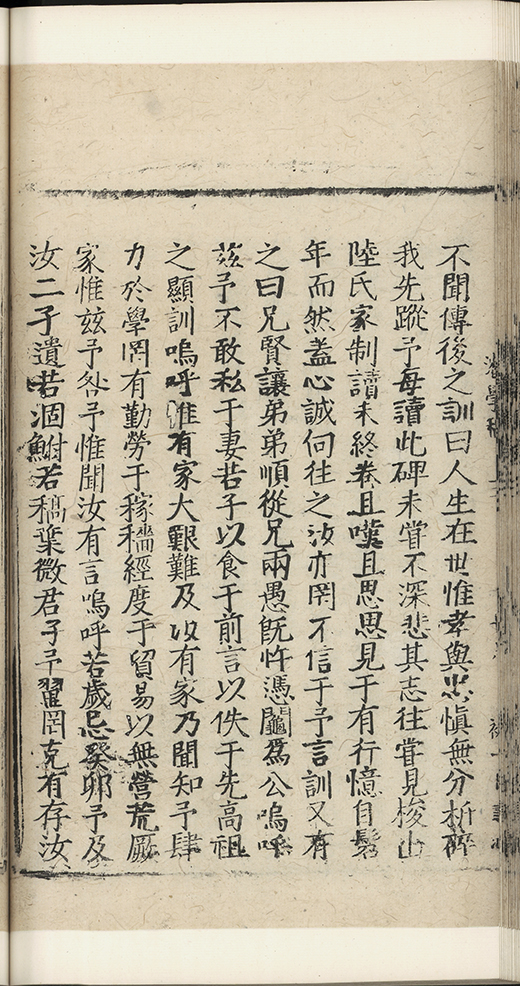 不聞傳後之訓曰人生在世惟孝與忠愼無分析碎
我先蹤予每讀此碑未嘗不深悲其志往嘗見梭山
陸氏家制讀未終卷且嘆且思思見于有行憶自髫
年而然盖心誠向往之汝亦罔不信于予言訓又有
之曰兄賢讓弟弟順從兄兩愚旣忤憑鬮爲公嗚呼
茲予不敢私于妻若子以食于前言以佚于先高祖
之顯訓嗚呼惟有家大艱難及以有家乃聞知予肆
力於學罔有勤勞于稼穡經度于貿易以無營荒厥
家惟兹予咎予惟聞汝有言嗚呼若歲忌癸卯予及
汝二子遺若涸鮒若稿葉微君子予翼罔克有存汝